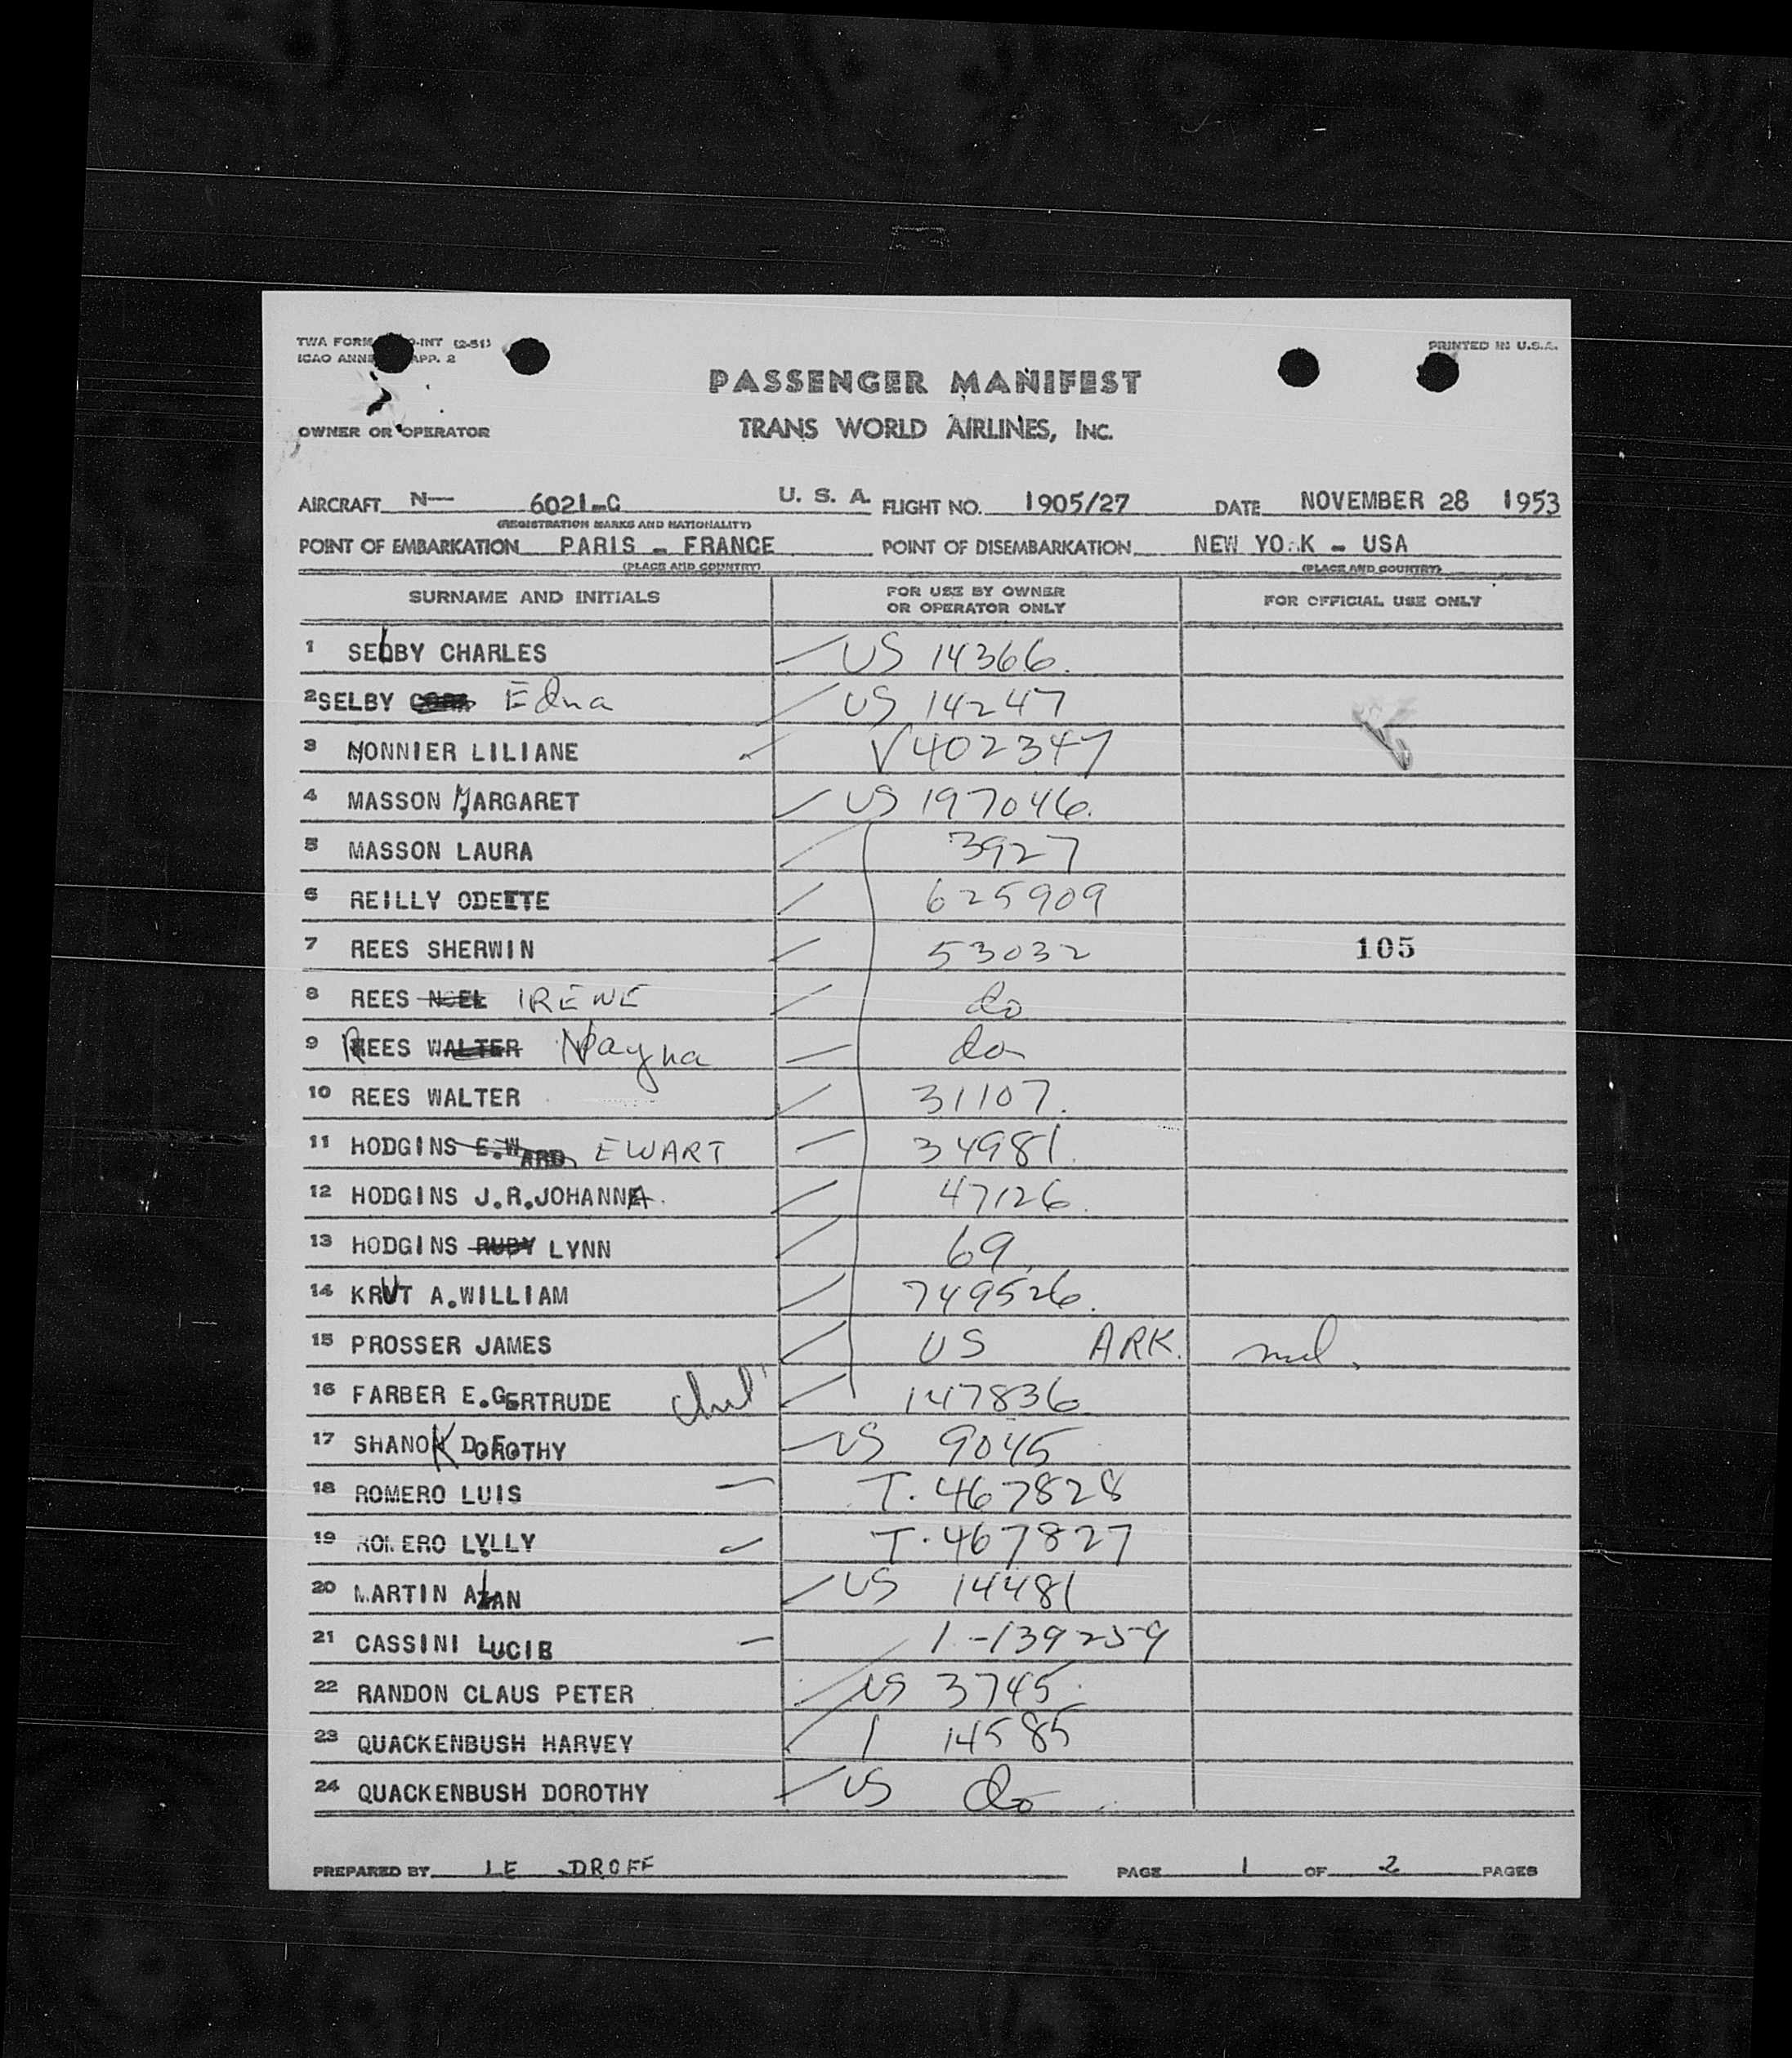 TWA FORM O-INT (2-51)
ICAO ANNE APP. 2
PRINTED IN U.S.A.
PASSENGER MANIFEST
OWNER OR OPERATOR
TRANS WORLD AIRLINES, INC.
AIRCRAFT N— 6021-C U. S. A. FLIGHT NO. 1905/27 DATE NOVEMBER 28 1953
(REGISTRATION MARKS AND NATIONALITY)
POINT OF EMBARKATION PARIS - FRANCE POINT OF DISEMBARKATION NEW YO K - USA
(PLACE AND COUNTRY) (PLACE AND COUNTRY)
SURNAME AND INITIALS FOR USE BY OWNER OR OPERATOR ONLY FOR OFFICIAL USE ONLY
1 SELBY CHARLES US 14366.
2 SELBY Edna US 14247
3 MONNIER LILIANE V402347
4 MASSON MARGARET US 197046.
5 MASSON LAURA 3927
6 REILLY ODETTE 625909
7 REES SHERWIN 53032 105
8 REES NOEL IRENE do
9 REES WALTER do
10 REES WALTER 31107.
11 HODGINS E.WARD EWART 34981.
12 HODGINS J.R.JOHANNA. 47126.
13 HODGINS RUBY LYNN 69
14 KRUT A.WILLIAM 749526.
15 PROSSER JAMES US ARK.
16 FARBER E.GERTRUDE 147836
17 SHANOK DOROTHY US 9045
18 ROMERO LUIS T. 467828
19 ROMERO LYLLY T. 467827
20 MARTIN ALAN US 14481
21 CASSINI LUCIE 1-139259
22 RANDON CLAUS PETER US 3745
23 QUACKENBUSH HARVEY 14585
24 QUACKENBUSH DOROTHY US do
PREPARED BY LE DROFF PAGE 1 OF 2 PAGES